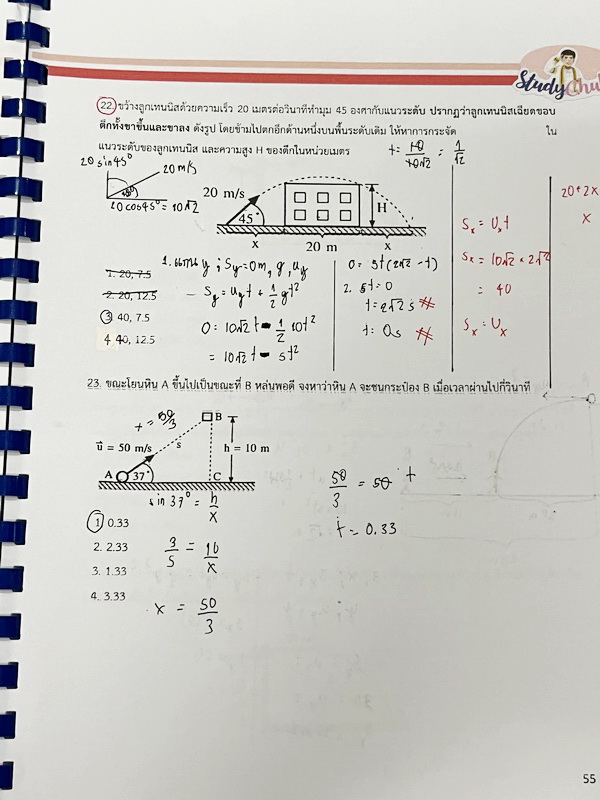 Study Chul
22. ขว้างลูกเทนนิสด้วยความเร็ว 20 เมตรต่อวินาทีทำมุม 45 องศากับแนวระดับ ปรากฏว่าลูกเทนนิสเฉียดขอบ
ตึกทั้งขาขึ้นและขาลง ดังรูป โดยข้ามไปตกอีกด้านหนึ่งบนพื้นระดับเดิม ให้หาการกระจัด ใน
แนวระดับของลูกเทนนิส และความสูง H ของตึกในหน่วยเมตร
t = 10/10√2 = 1/√2
20 sin 45°
20 m/s
20 cos 45° = 10√2
20 m/s
45°
H
x 20 m x
20+2x
x
Sx = Uxt
Sx = 10√2 × 2√2
= 40
Sx = Ux
1. แกน y ; Sy = 0 m, g, uy
Sy = uyt + 1/2 gt²
0 = 10√2 t - 1/2 10t²
= 10√2 t - 5t²
0 = 5t(2√2 - t)
2. 5t = 0
t = 2√2 s #
t = 0s #
1. 20, 7.5
2. 20, 12.5
3 40, 7.5
4. 40, 12.5
23. ขณะโยนหิน A ขึ้นไปเป็นขณะที่ B หล่นพอดี จงหาว่าหิน A จะชนกระป๋อง B เมื่อเวลาผ่านไปกี่วินาที
B
u = 50 m/s
s
h = 10 m
A 37° C
sin 37° = h/x
3/5 = 10/x
x = 50/3
50/3 = 50 t
t = 0.33
1. 0.33
2. 2.33
3. 1.33
4. 3.33
55